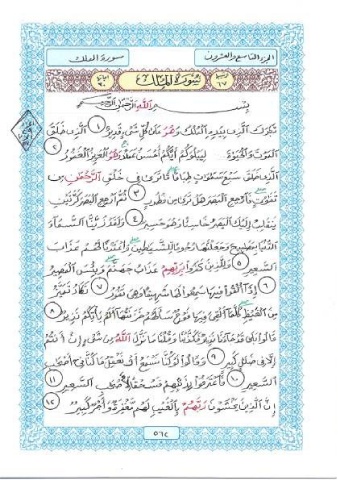 الجزء التاسع والعشرون
سورة الملك
سورة الملك
بسم الله الرحمن الرحيم
تبرك الذى بيده الملك وهو على كل شىء قدير ١ الذى خلق
الموت والحيوة ليبلوكم أيكم أحسن عملا وهو العزيز الغفور ٢
الذى خلق سبع سموت طباقا ما ترى فى خلق الرحمن من
تفوت فارجع البصر هل ترى من فطور ٣ ثم ارجع البصر كرتين
ينقلب إليك البصر خاسئا وهو حسير ٤ ولقد زينا السماء
الدنيا بمصبيح وجعلنها رجوما للشيطين وأعتدنا لهم عذاب
السعير ٥ وللذين كفروا بربهم عذاب جهنم وبئس المصير
٦ إذا ألقوا فيها سمعوا لها شهيقا وهى تفور ٧ تكاد تميز
من الغيظ كلما ألقى فيها فوج سألهم خزنتها ألم يأتكم نذير ٨
قالوا بلى قد جاءنا نذير فكذبنا وقلنا ما نزل الله من شىء إن أنتم
إلا فى ضلل كبير ٩ وقالوا لو كنا نسمع أو نعقل ما كنا فى أصحب
السعير ١٠ فاعترفوا بذنبهم فسحقا لأصحب السعير ١١
إن الذين يخشون ربهم بالغيب لهم مغفرة وأجر كبير ١٢
٥٦٢